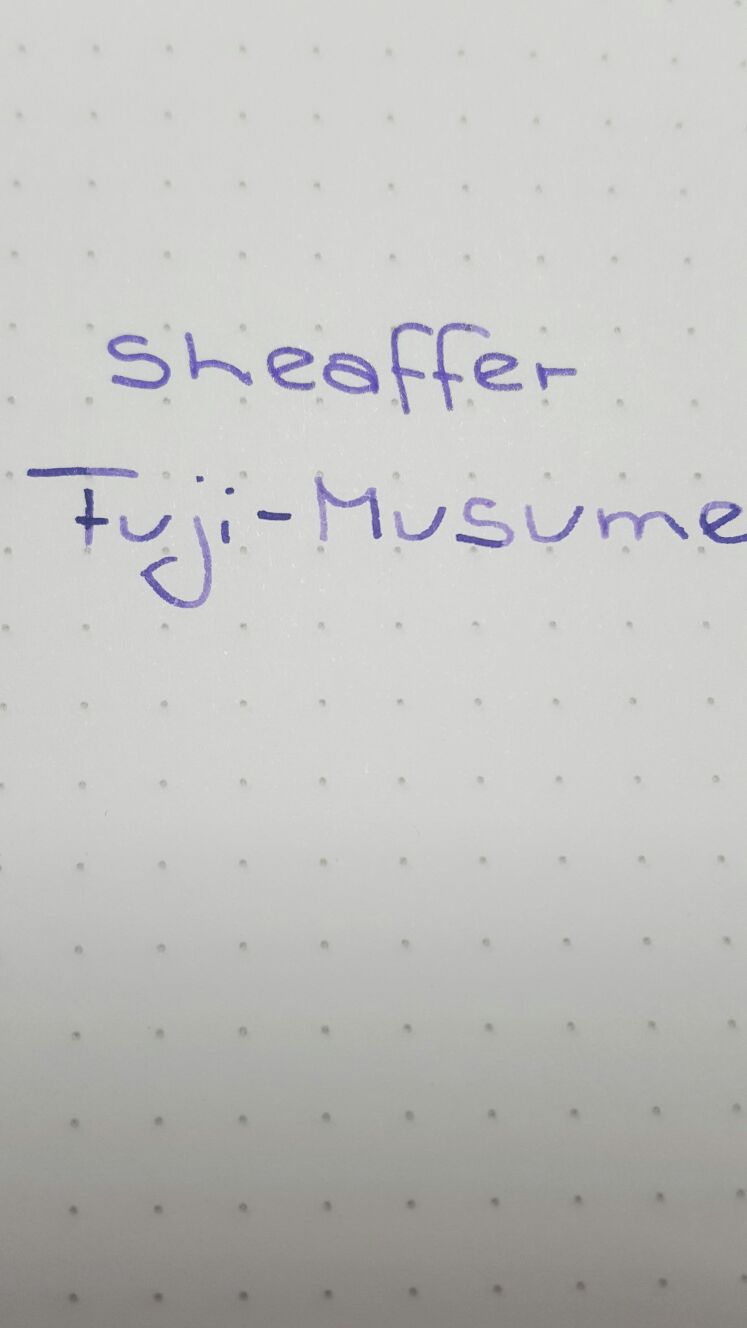 Sheaffer
Fuji-Musume